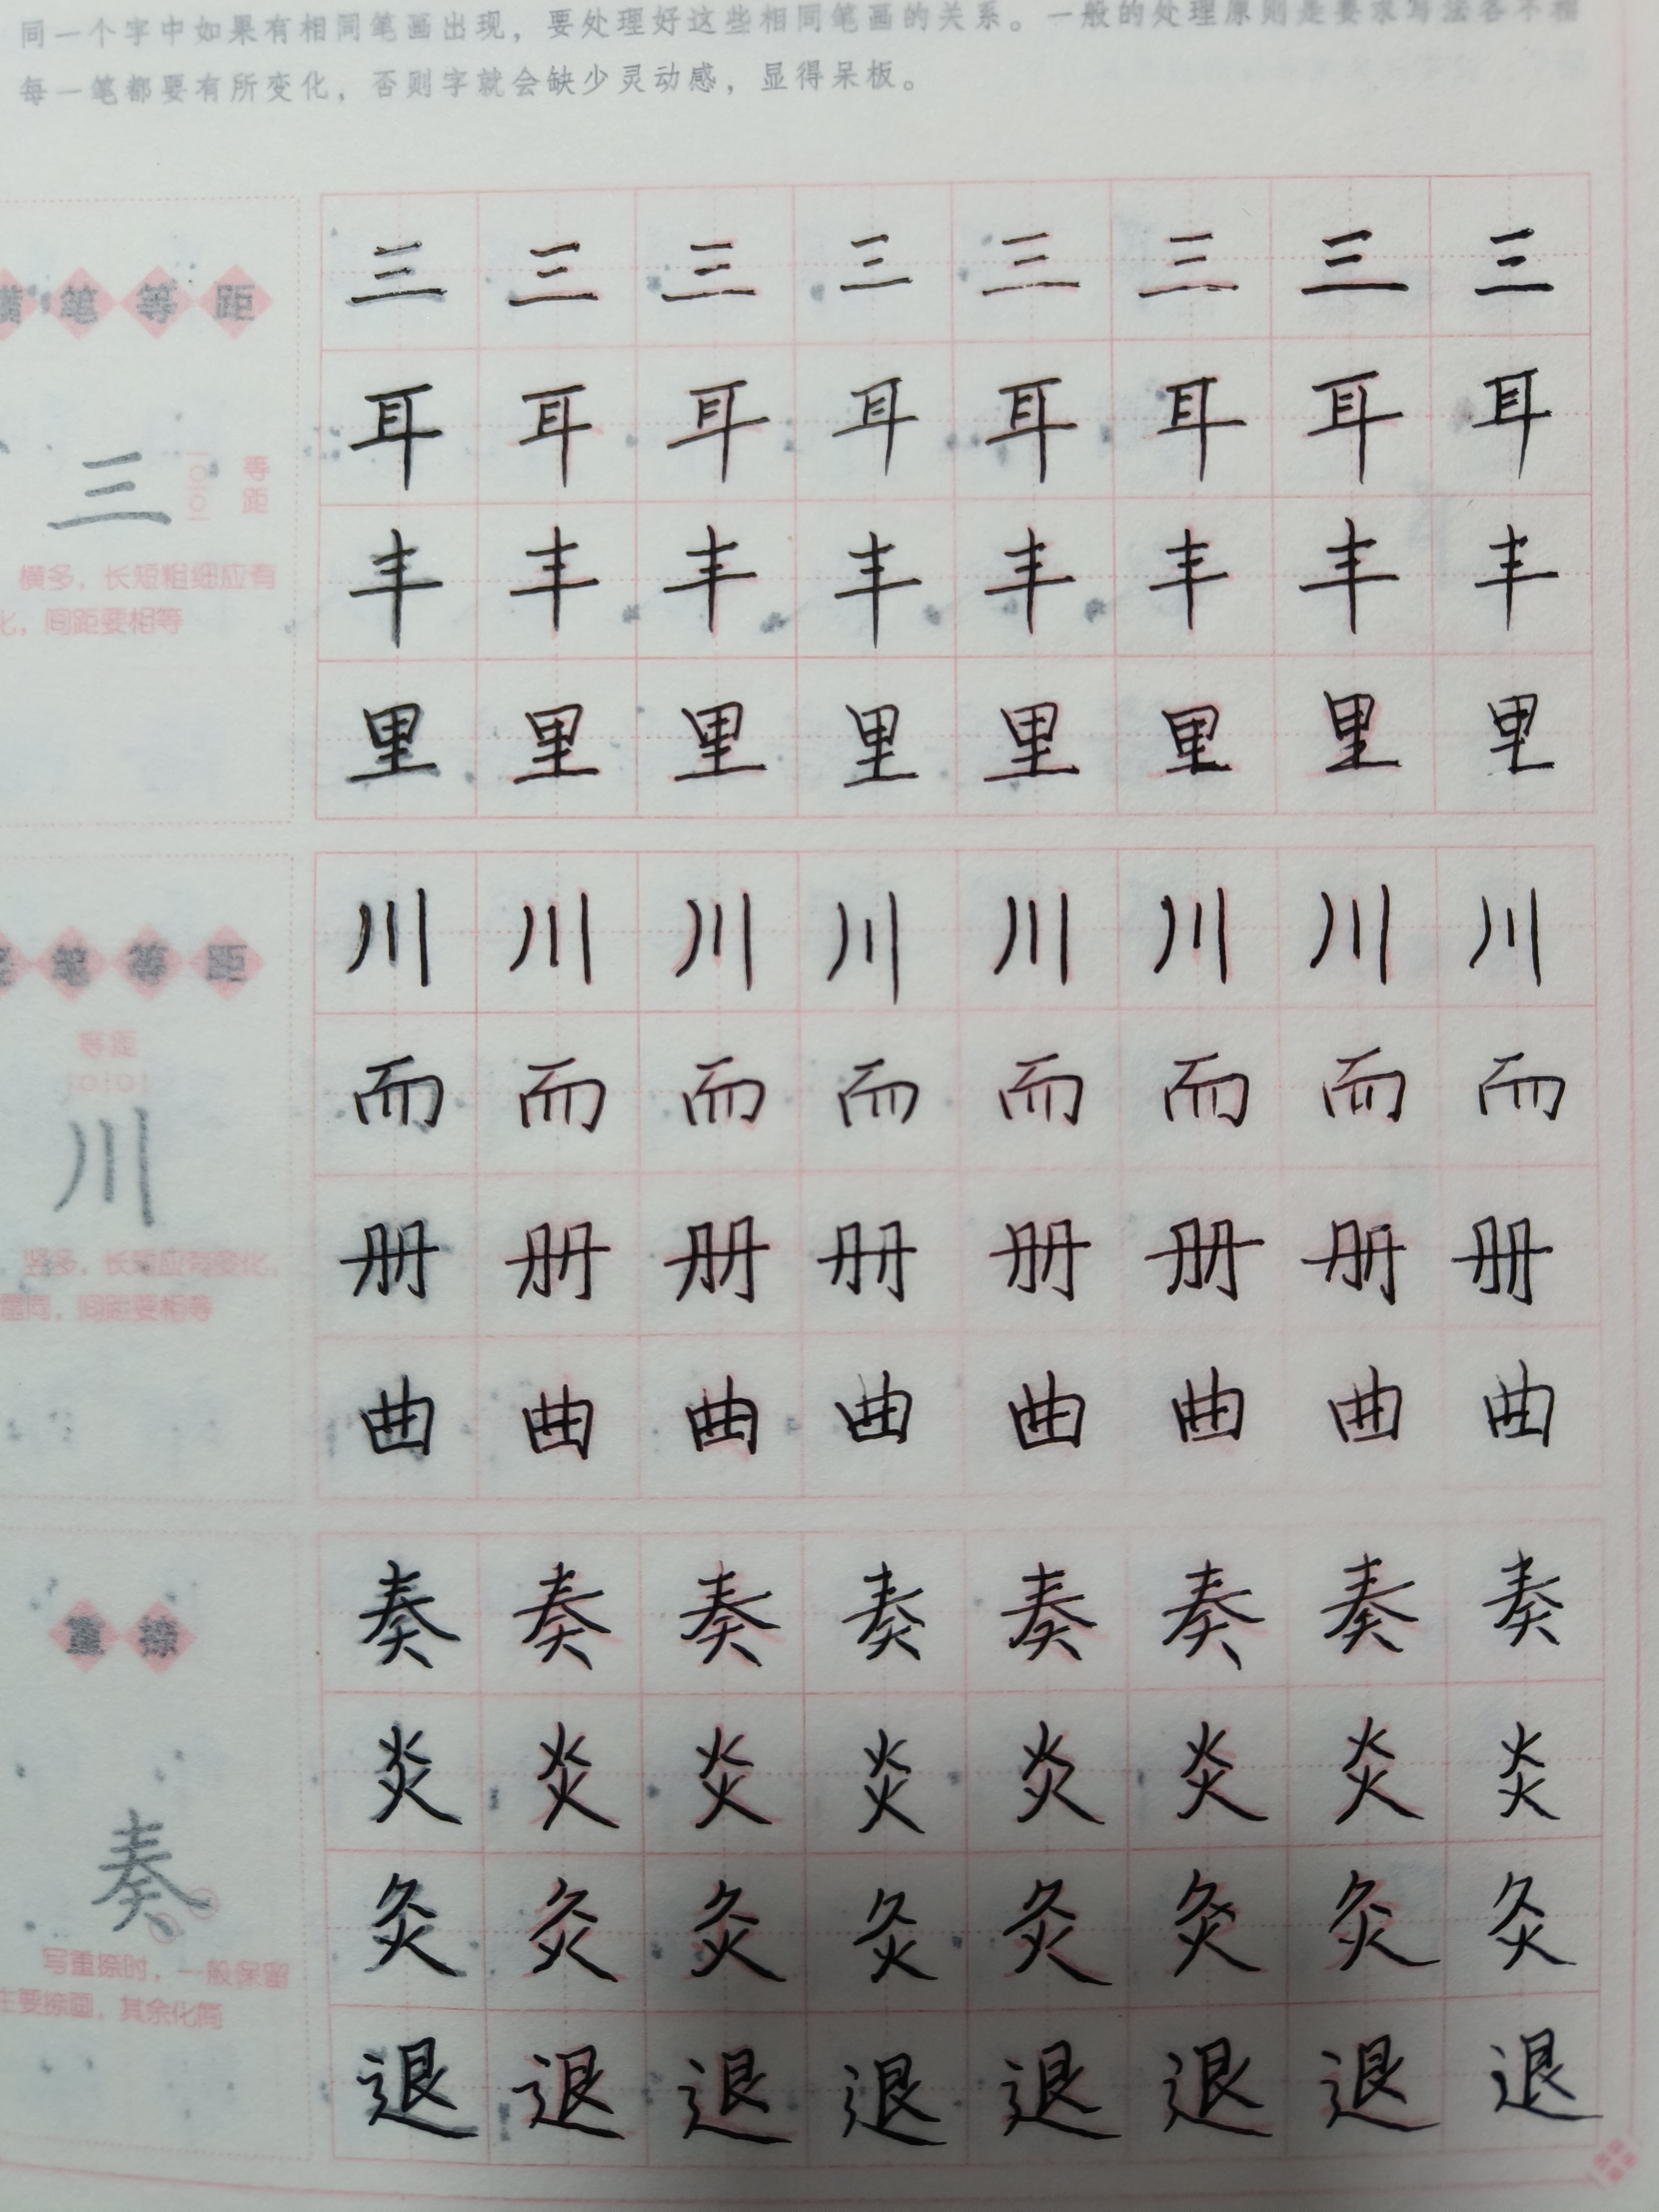 同一个字中如果有相同笔画出现，要处理好这些相同笔画的关系。一般的处理原则是要求写法各不相
每一笔都要有所变化，否则字就会缺少灵动感，显得呆板。
横笔等距
三
等距
横多，长短粗细应有
化，间距要相等
三三三三三三三三
耳耳耳耳耳耳耳耳
丰丰丰丰丰丰丰丰
里里里里里里里里
竖笔等距
等距
川
竖多，长短应有变化，
间距要相等
川川川川川川川川
而而而而而而而而
册册册册册册册册
曲曲曲曲曲曲曲曲
重捺
奏
写重捺时，一般保留
主要捺画，其余化简
奏奏奏奏奏奏奏奏
炎炎炎炎炎炎炎炎
灸灸灸灸灸灸灸灸
退退退退退退退退